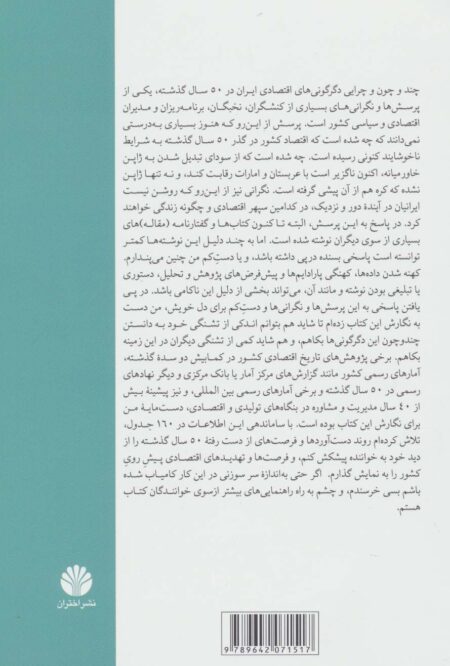 چند و چون و چرایی دگرگونی‌های اقتصادی ایران در ۵۰ سال گذشته، یکی از
پرسش‌ها و نگرانی‌های بسیاری از کنشگران، نخبگان، برنامه‌ریزان و مدیران
اقتصادی و سیاسی کشور است. پرسش از این‌رو که هنوز بسیاری به‌درستی
نمی‌دانند که چه شده است که اقتصاد کشور در گذر ۵۰ سال گذشته به شرایط
ناخوشایند کنونی رسیده است. چه شده است که از سودای تبدیل شدن به ژاپن
خاورمیانه، اکنون ناگزیر است با عربستان و امارات رقابت کند، و نه تنها ژاپن
نشده که کره هم از آن پیشی گرفته است. نگرانی نیز از این‌رو که روشن نیست
ایرانیان در آیندۀ دور و نزدیک، در کدامین سپهر اقتصادی و چگونه زندگی خواهند
کرد. در پاسخ به این پرسش، البته تا کنون کتاب‌ها و گفتارنامه (مقاله)های
بسیاری از سوی دیگران نوشته شده است. اما به چند دلیل این نوشته‌ها کمتر
توانسته است پاسخی بسنده درپی داشته باشد، و یا دست‌کم من چنین می‌پندارم.
کهنه شدن داده‌ها، کهنگی پارادایم‌ها و پیش‌فرض‌های پژوهش و تحلیل، دستوری
یا تبلیغی بودن نوشته و مانند آن، می‌تواند بخشی از دلیل این ناکامی باشد. در پی
یافتن پاسخی به این پرسش‌ها و نگرانی‌ها و دست‌کم برای دل خویش، من دست
به نگارش این کتاب زده‌ام تا شاید هم بتوانم اندکی از تشنگی خود به دانستن
چندوچون این دگرگونی‌ها بکاهم، و هم شاید کمی از تشنگی دیگران در این زمینه
بکاهم. برخی پژوهش‌های تاریخ اقتصادی کشور در کمابیش دو سدۀ گذشته،
آمارهای رسمی کشور مانند گزارش‌های مرکز آمار یا بانک مرکزی و دیگر نهادهای
رسمی در ۵۰ سال گذشته و برخی آمارهای رسمی بین المللی، و نیز پیشینۀ بیش
از ۴۰ سال مدیریت و مشاوره در بنگاه‌های تولیدی و اقتصادی، دست‌مایۀ من
برای نگارش این کتاب بوده است. با ساماندهی این اطلاعات در ۱۶۰ جدول،
تلاش کرده‌ام روند دست‌آوردها و فرصت‌های از دست رفتۀ ۵۰ سال گذشته را از
دید خود به خواننده پیشکش کنم، و فرصت‌ها و تهدیدهای اقتصادی پیش رویِ
کشور را به نمایش گذارم. اگر حتی به‌اندازۀ سر سوزنی در این کار کامیاب شده
باشم بسی خرسندم، و چشم به راه راهنمایی‌های بیشتر ازسوی خوانندگان کتاب
هستم.
نشر اختران
9 789642 071517